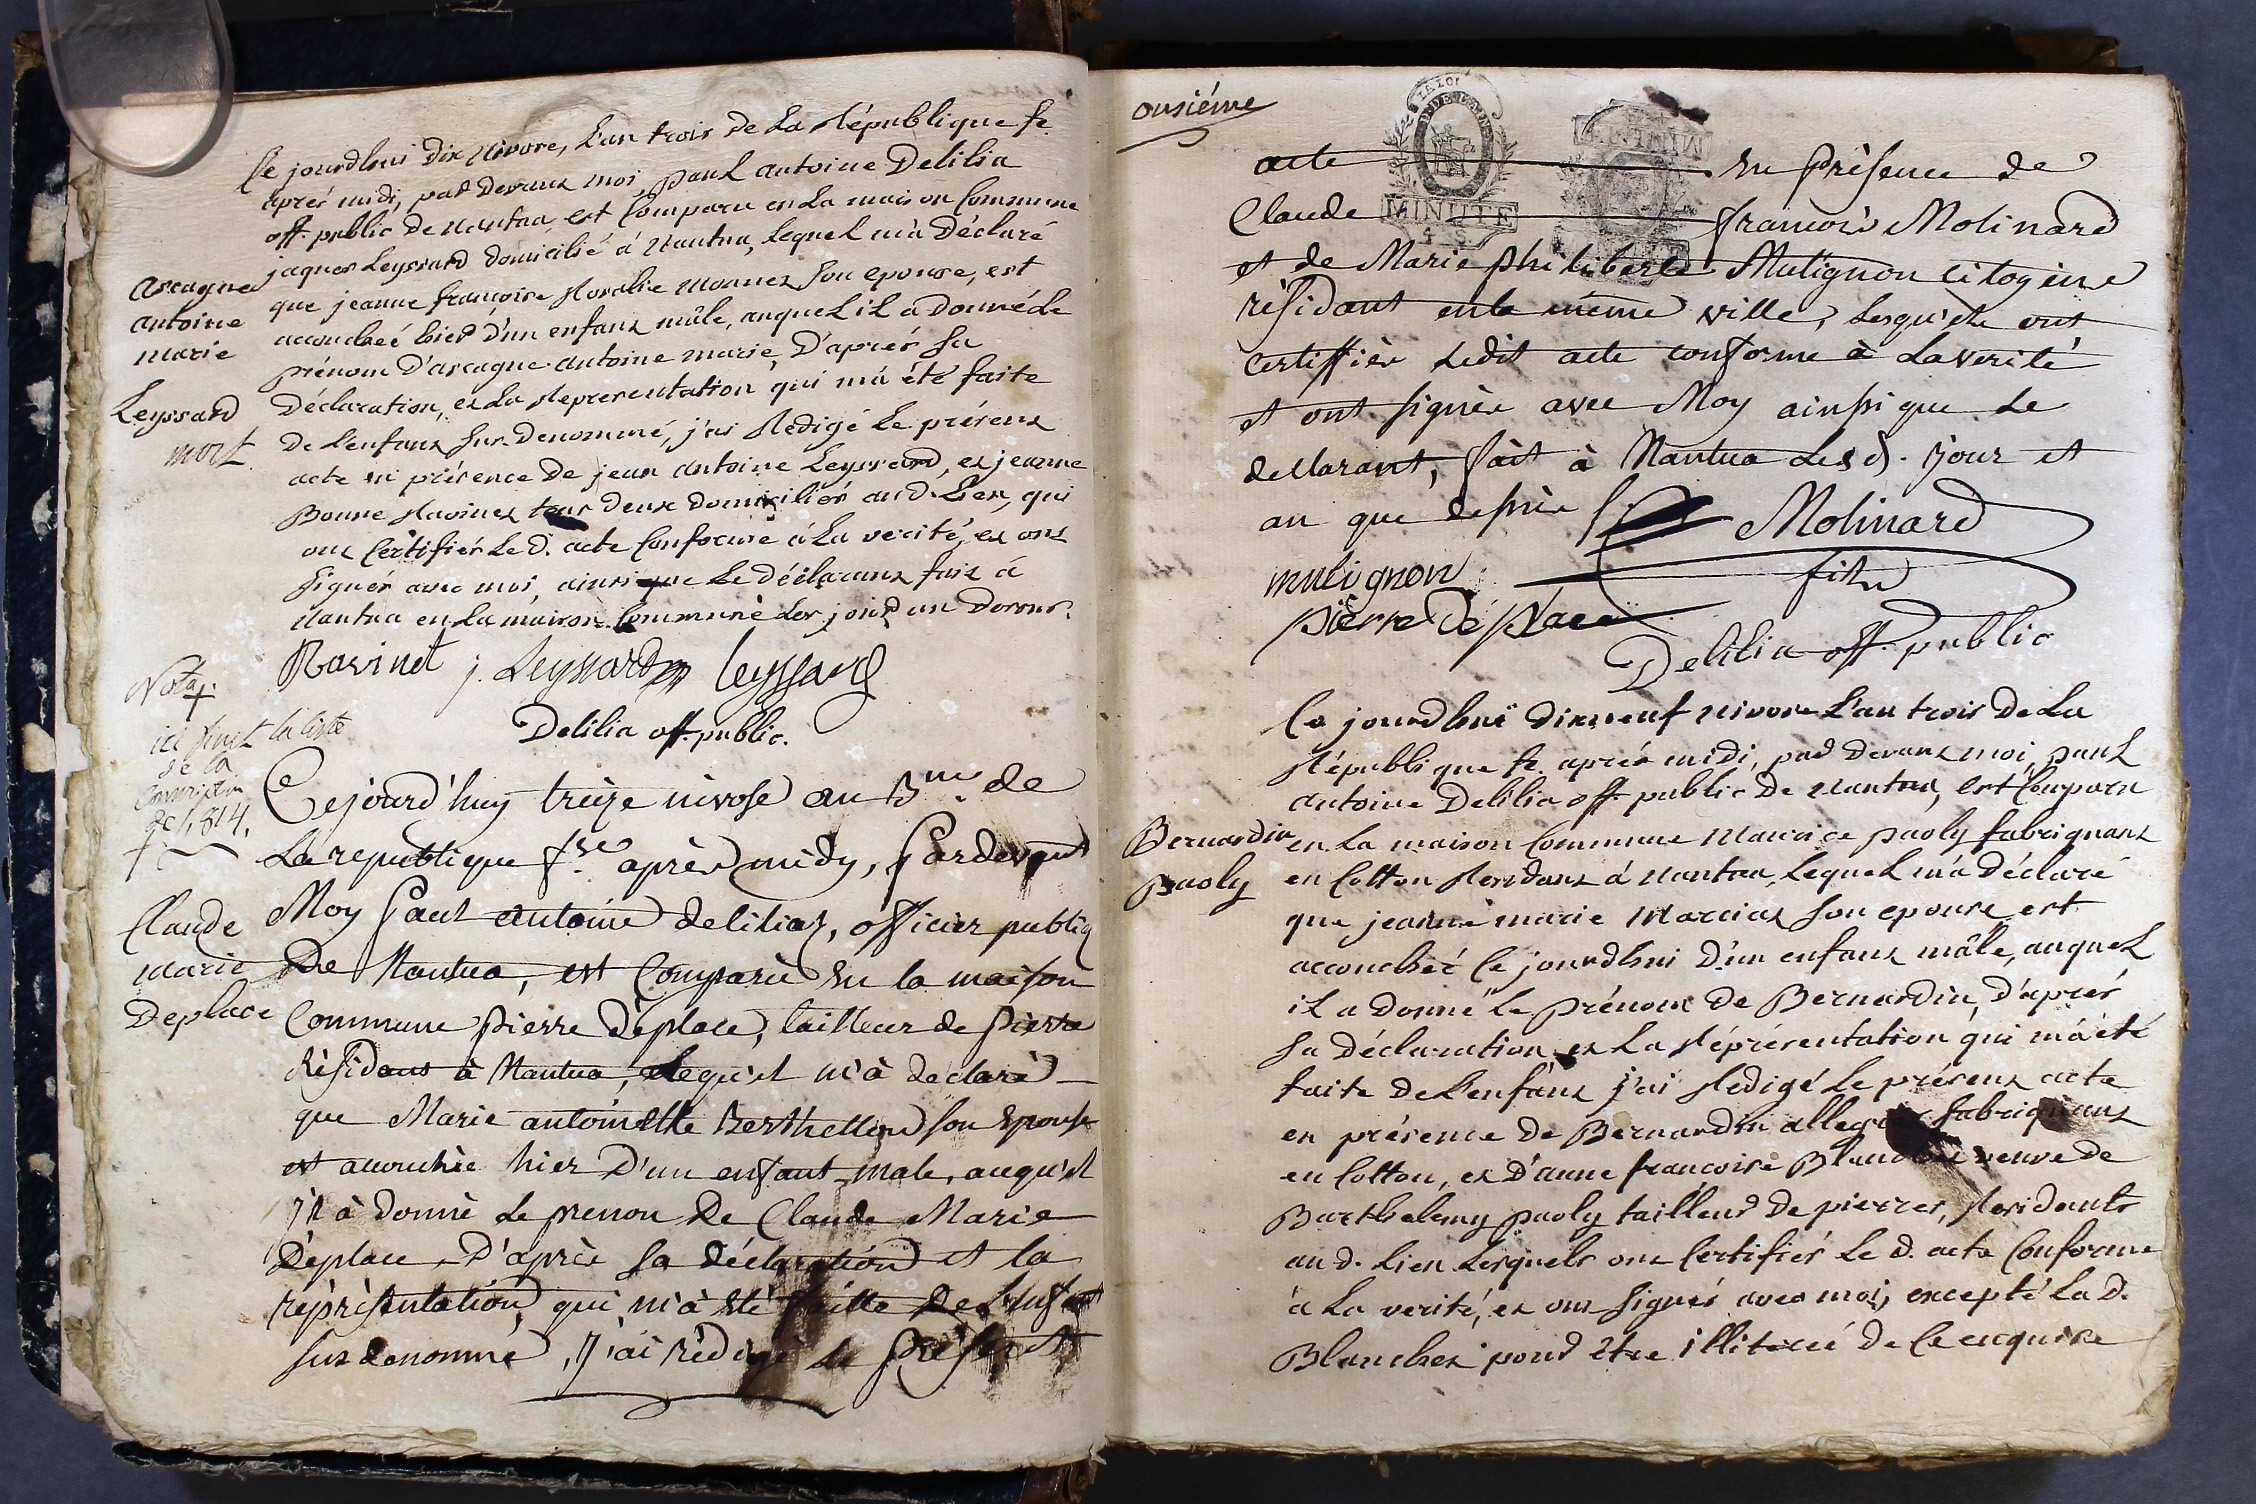 Ce jourdhui dix Nivore, L'an trois de La République fe
après midi, pard Devant moi, paul antoine Delilia
off. public de Nantua, est Comparu en La maison Commune
jaques Leyssard domicilié à Nantua, Lequel m'a Déclaré
que jeanne françoise Rosalie monnet son epouse, est
accouchée hier d'un enfant mâle, auquel il a donné Le
prénom D'ascagne antoine marie, D'après sa
Déclaration, et La Representation qui m'a été faite
De L'enfant sus-Denommé, j'ai Redigé Le présent
acte en présence De jean antoine Leyssard, et jeanne
Bonne Ravinet tous deux domiciliés aud. Lieu, qui
ont Certifiés Le d. acte Conforme à La verité, et ont
signés avec moi, ainsi que Le Déclarant fait à
Nantua en La maison Commune Les jour et an
Ascagne
antoine
marie
Leyssard
mort
Ravinet j. Leyssard Leyssard
Delilia off. public.
Nota
ici finit la liste
de la
Conscription
de 1814.
Cejourd'huy treize nivose an 3me. de
La republique fse. après midy, Pardevant
Moy Paul antoine deliliaz, officier publiq
De Nantua, est Comparu En la maison
Commune pierre Déplace, tailleur de pierre
Résidant à Nantua, Lequ'el m'à declaré
que Marie antoinette Berthellon son Epouse
est accouchée hier D'un enfant male, auqu'el
il à donné Le prenon De Claude Marie
Déplace, D'après sa déclaration et la
répréséntation, qui m'à été faitte De L'enfant
sus denommé, j'ai rédigé Le présent
Claude
Marie
Deplace
onsiéme
LA LOI
MINUTE
MINUTE
acte En présence de
Claude francois Molinard
et de Marie philiberte Mutignon citogéne
résidant en la méme ville, Lesqu'els ont
certiffiés Ledit acte conforme à La verité
et ont signès avec Moy ainsi que Le
dellarant, fait à Nantua Les d. jour et
an que dessùs Molinard
mutignon fils
pierre dé place
Delilia off. public
Ce jourdhui dixneuf Nivore L'an trois De La
République fe. après midi, pard Devant moi, paul
antoine Delilia off. public De Nantua, est Comparu
en La maison Commune Maurice paoly fabriquant
en Cotton Residant à Nantua, Lequel m'a Déclaré
que jeanne marie Marciat son epouse est
accouchée Ce jourdhui D'un enfant mâle, auquel
il a donné Le prénom De Bernardin, d'après
sa Déclaration et La Réprésentation qui m'a été
faite De L'enfant j'ai Redigé Le présent acte
en présence De Bernardin fabriquant
en Cotton, et D'anne françoise veuve De
Barthelemy paoly tailleur De pierres, Residants
au d. Lieu Lesquels ont Certifiés Le d. acte Conforme
à La verité, et ont signés avec moi, excepté La d.
Blanchet pour être illiterée De Ce enquise
Bernardin
Paoly